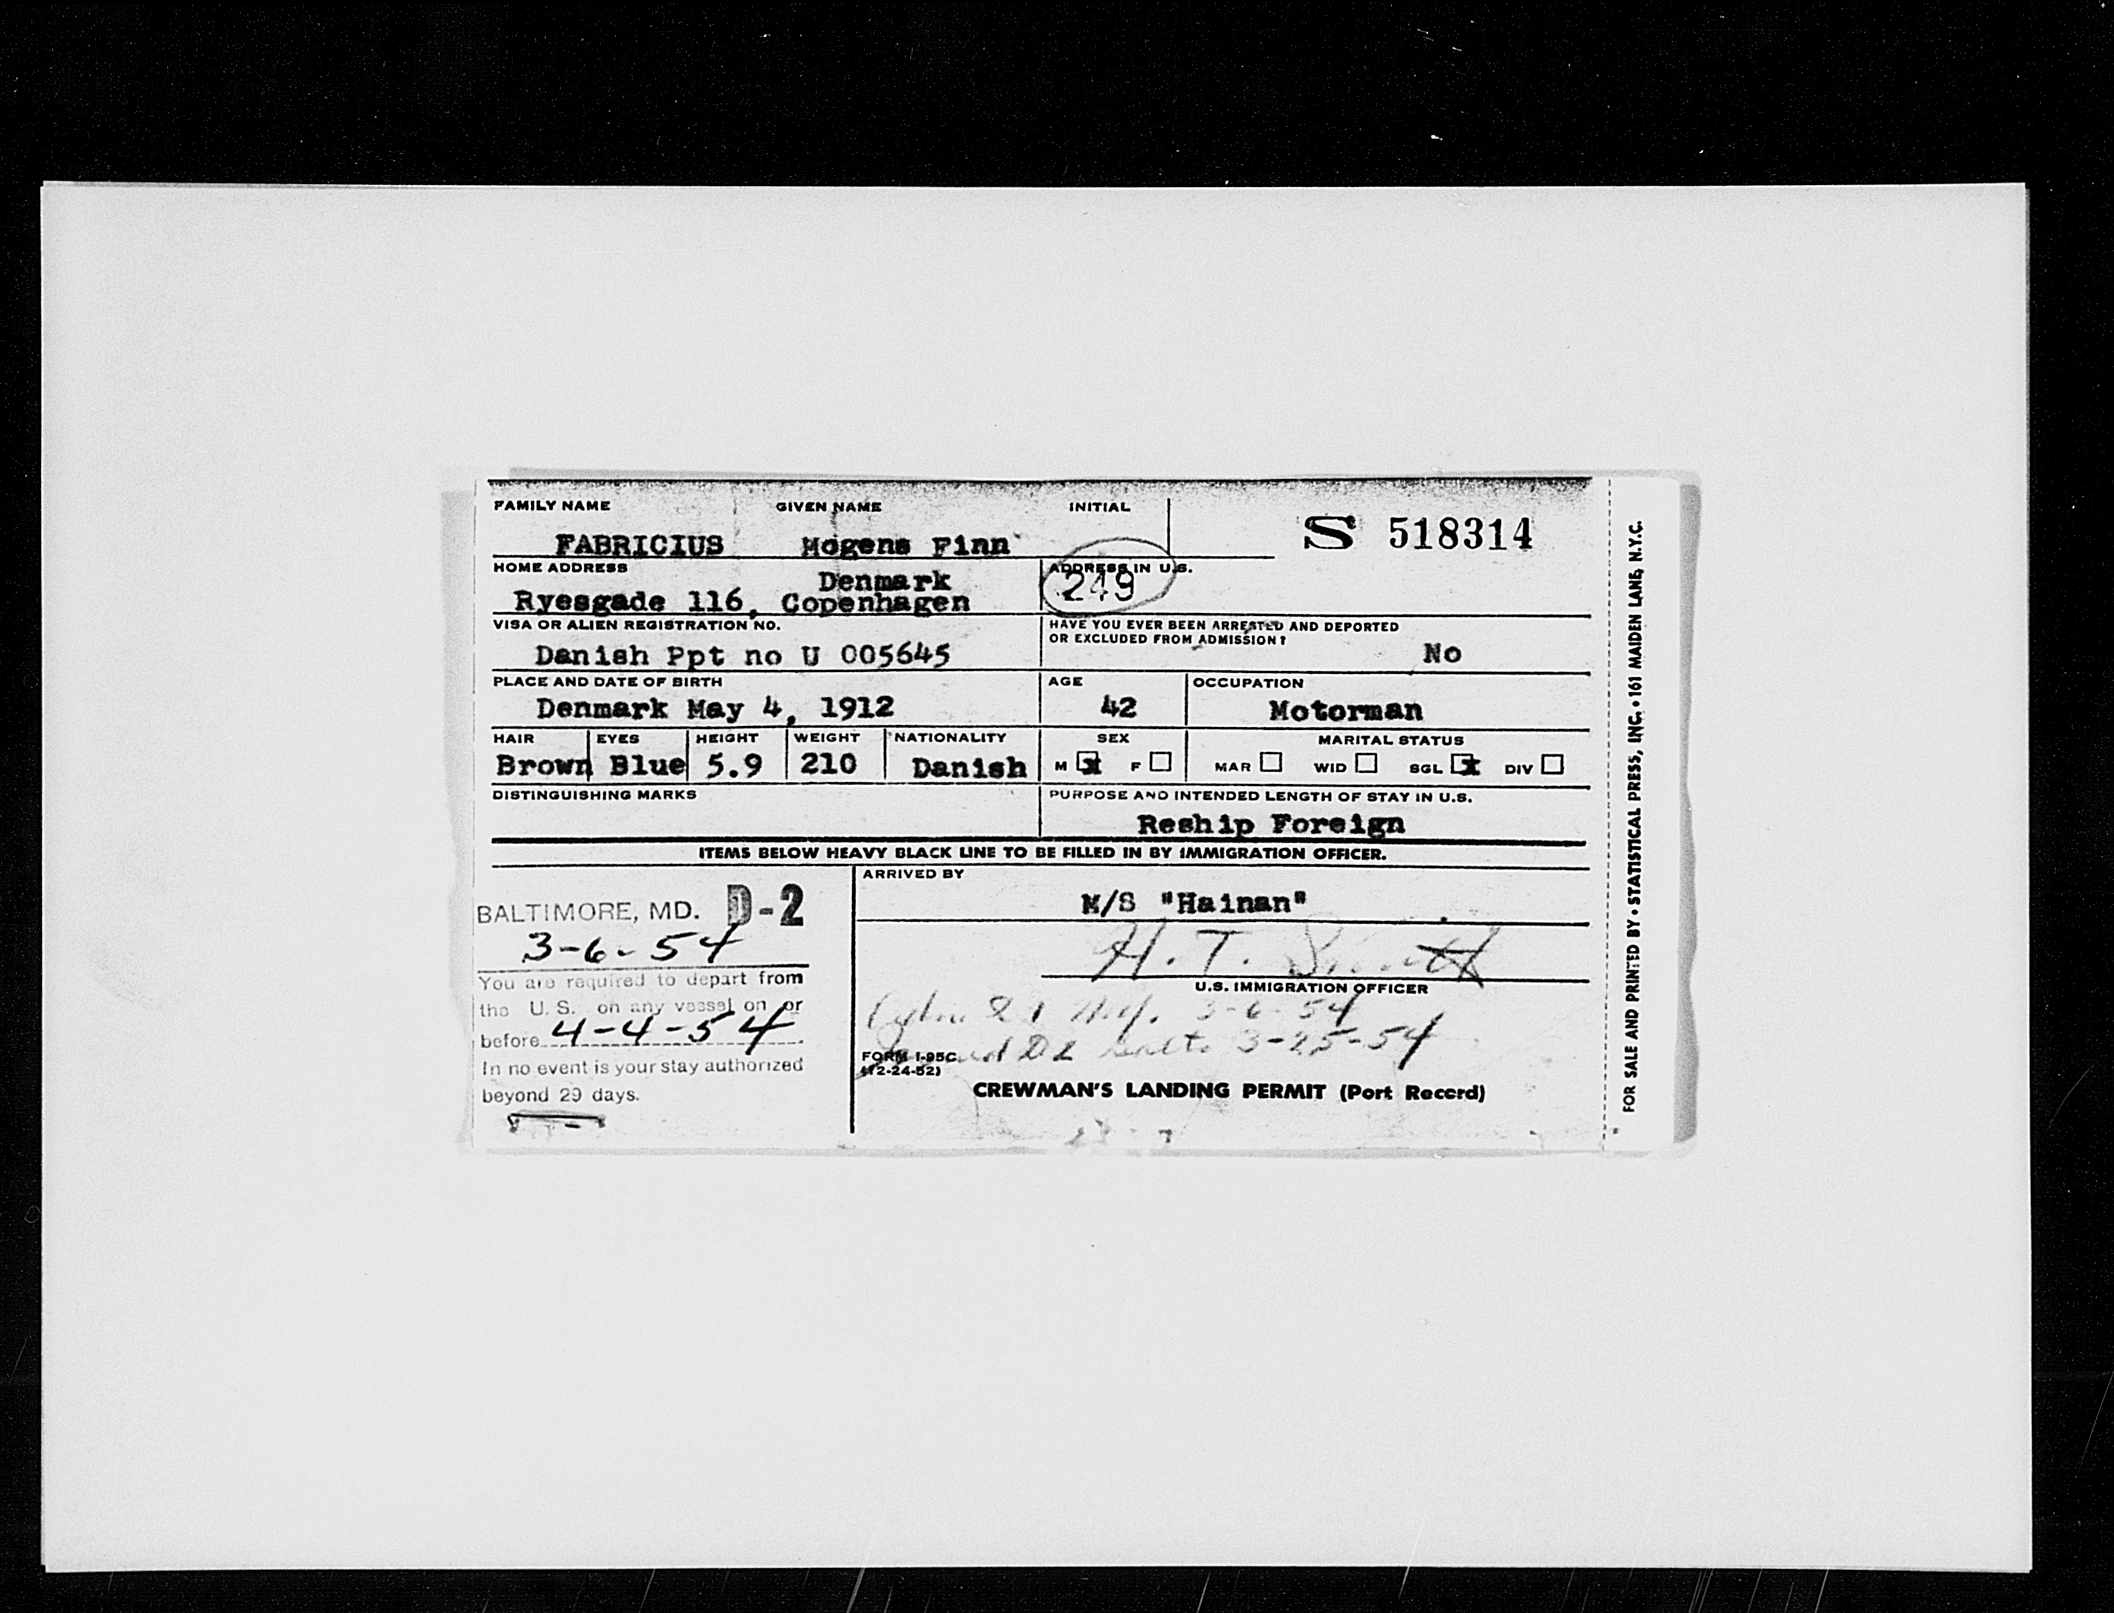 FAMILY NAME GIVEN NAME INITIAL
S 518314
FABRICIUS Mogens Finn
HOME ADDRESS ADDRESS IN U.S.
Denmark 249
Ryesgade 116, Copenhagen
VISA OR ALIEN REGISTRATION NO. HAVE YOU EVER BEEN ARRESTED AND DEPORTED
OR EXCLUDED FROM ADMISSION?
Danish Ppt no U 005645 No
PLACE AND DATE OF BIRTH AGE OCCUPATION
Denmark May 4, 1912 42 Motorman
HAIR EYES HEIGHT WEIGHT NATIONALITY SEX MARITAL STATUS
Brown Blue 5.9 210 Danish M x F MAR WID SGL x DIV
DISTINGUISHING MARKS PURPOSE AND INTENDED LENGTH OF STAY IN U.S.
Reship Foreign
ITEMS BELOW HEAVY BLACK LINE TO BE FILLED IN BY IMMIGRATION OFFICER.
BALTIMORE, MD. D-2
3-6-54
You are required to depart from
the U. S. on any vessel on or
before 4-4-54
In no event is your stay authorized
beyond 29 days.
ARRIVED BY
M/S "Hainan"
H. T. Smith
U.S. IMMIGRATION OFFICER
3-6-54
D2 Balto 3-25-54
FORM I-95C
(12-24-52)
CREWMAN'S LANDING PERMIT (Port Record)
FOR SALE AND PRINTED BY • STATISTICAL PRESS, INC. • 161 MAIDEN LANE, N.Y.C.